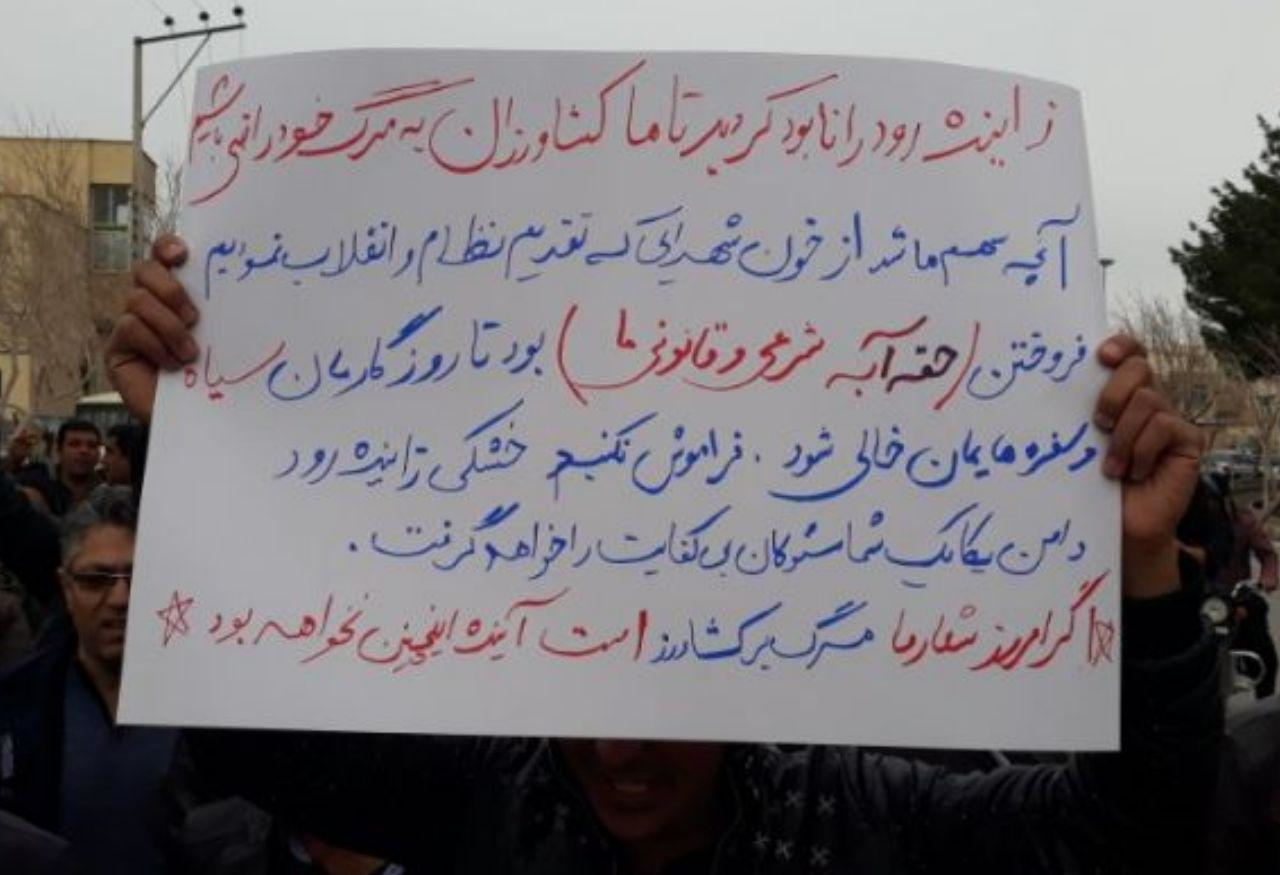 زاینده رود را نابود کردید تا ما کشاورزان به مرگ خود راضی باشیم
آنچه سهم ما شد از خون شهدایی که تقدیم نظام و انقلاب نمودیم
فروختن (حقه آبه شرعی و قانونی ما) بود تا روزگارمان سیاه
و سفره هایمان خالی شود . فراموش نکنیم خشکی زاینده رود
دامن یکایک شما مسئولان بی کفایت را خواهد گرفت .
اگر امروز شعار ما مرگ بر کشاورز است آینده اینچنین نخواهد بود